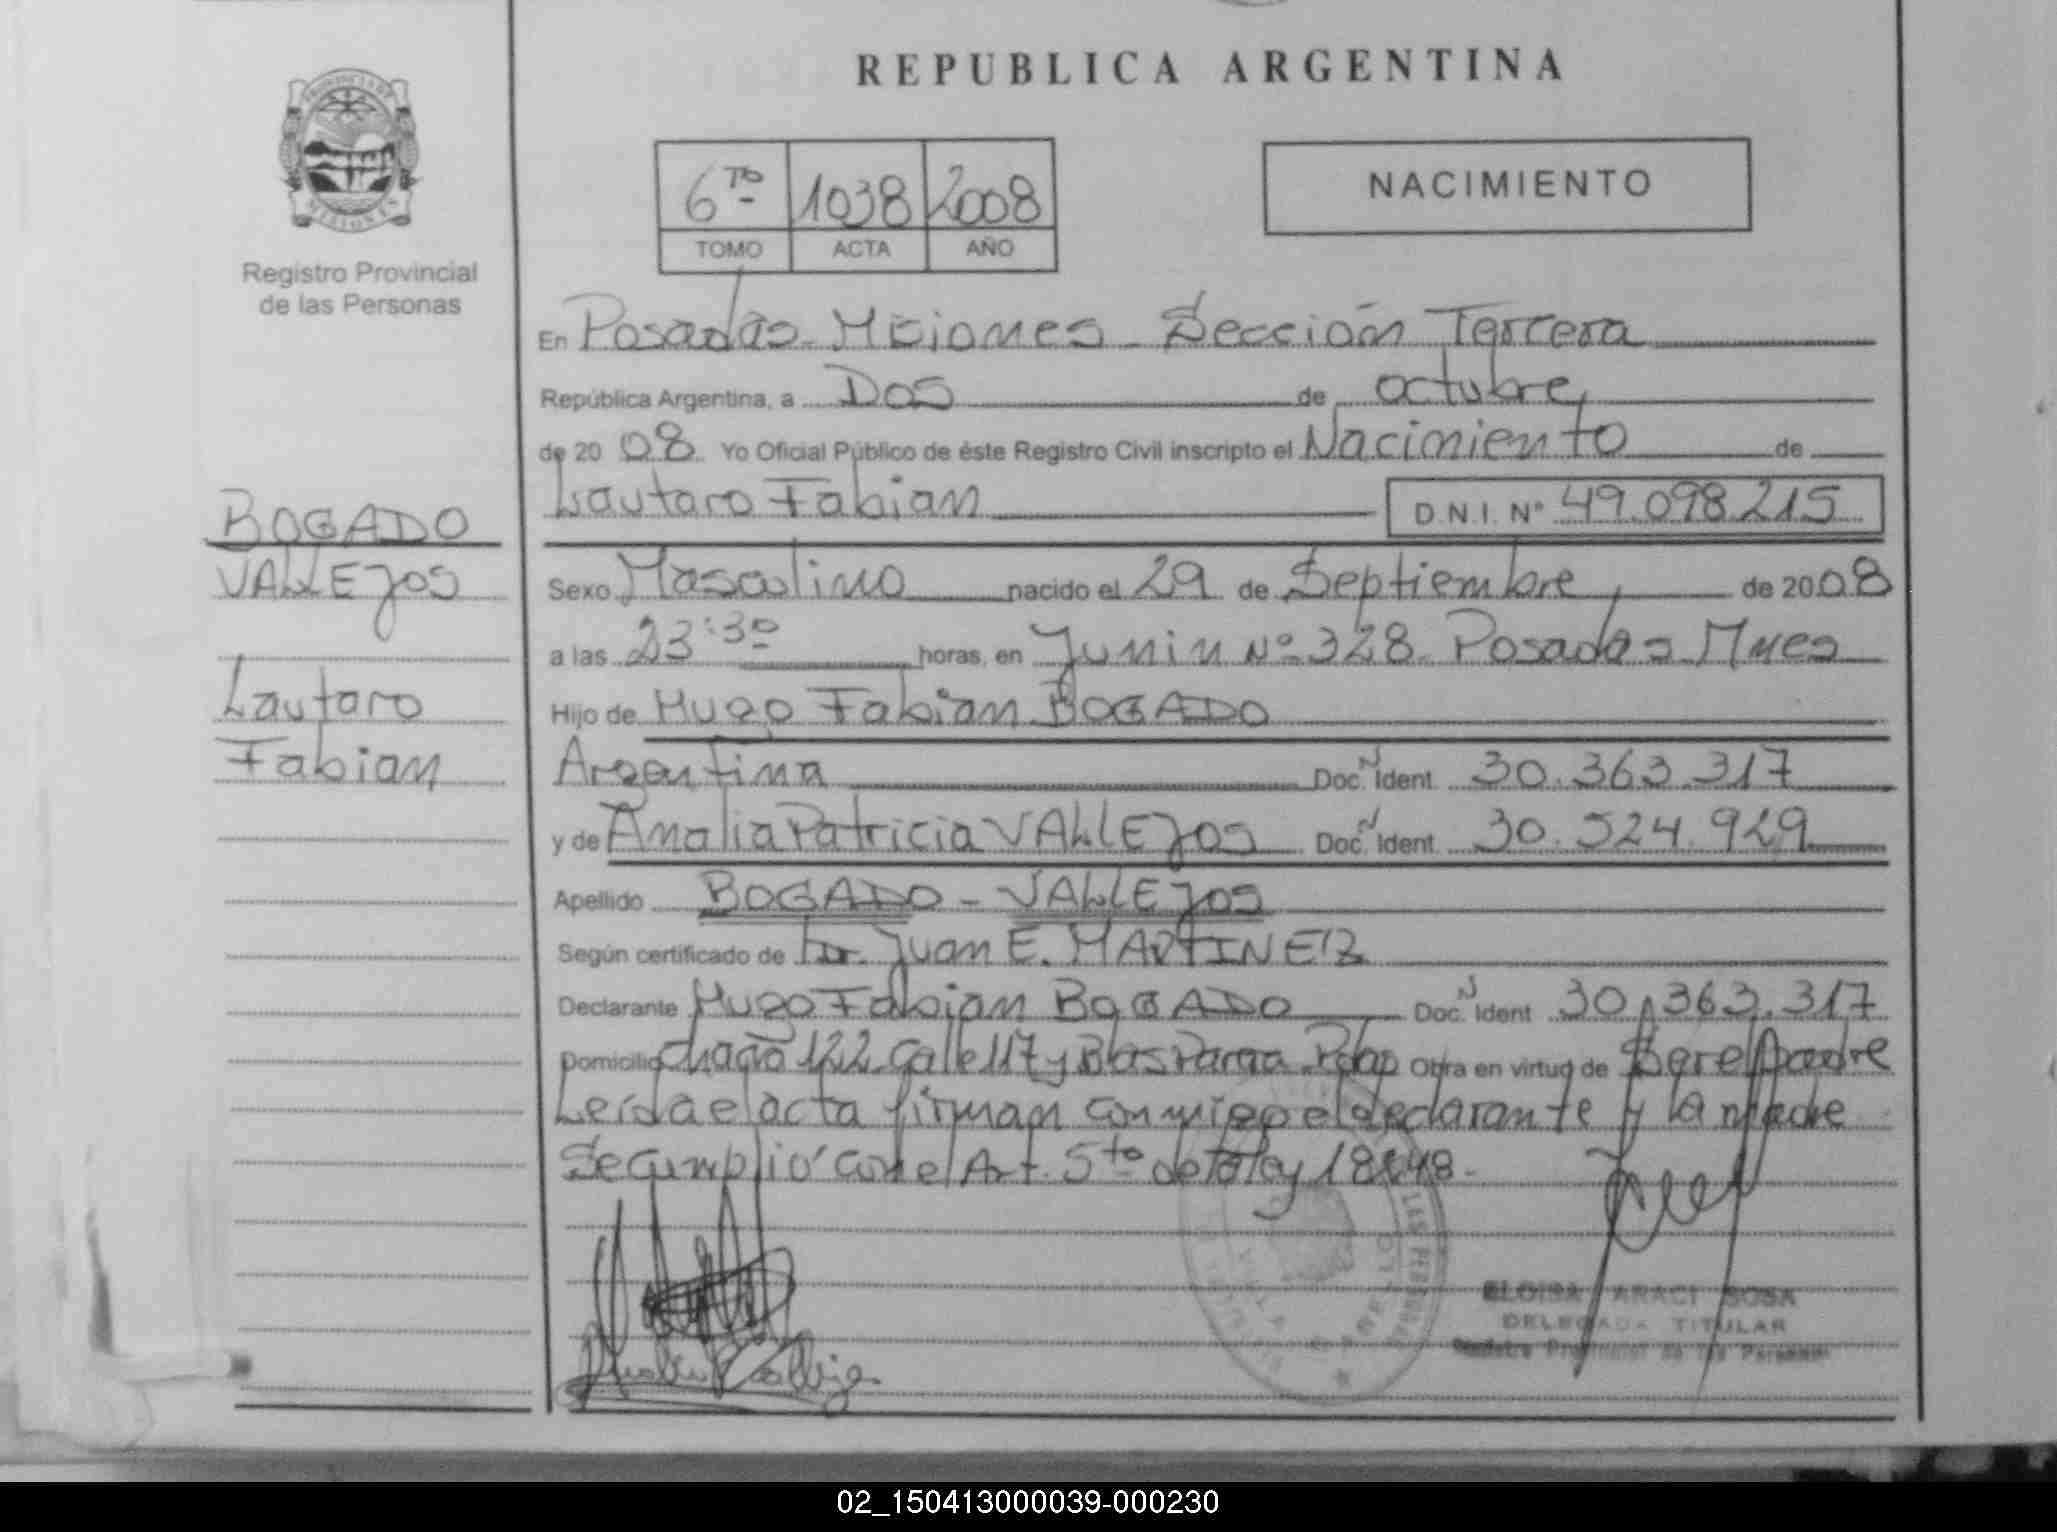 REPUBLICA ARGENTINA
PROVINCIA DE
MISIONES
Registro Provincial
de las Personas
6to 1038 2008
TOMO ACTA AÑO
NACIMIENTO
En Posadas - Misiones - Sección Tercera
República Argentina, a Dos de octubre
de 20 08 Yo Oficial Público de éste Registro Civil inscripto el Nacimiento de
Lautaro Fabian D.N.I. Nº 49.098.215
BOGADO
VALLEJOS
Lautaro
Fabian
Sexo Masculino nacido el 29 de Septiembre de 20 08
a las 23:30 horas, en Junin Nº 328 Posadas Mnes
Hijo de Hugo Fabian BOGADO
Argentina Doc. N Ident. 30.363.317
y de Analia Patricia VALLEJOS Doc. N Ident. 30.524.929
Apellido BOGADO - VALLEJOS
Según certificado de Dr. Juan E. MARTINEZ
Declarante Hugo Fabian BOGADO Doc. N Ident. 30.363.317
Domicilio 122 Calle 117 y Blas Parera Obra en virtud de Ser el padre
Leída el acta firman conmigo el declarante y la madre
Se cumplió con el Art. 5to de la ley
ELOISA ARACI SOSA
DELEGADA TITULAR
Registro Provincial de las Personas
02_150413000039-000230